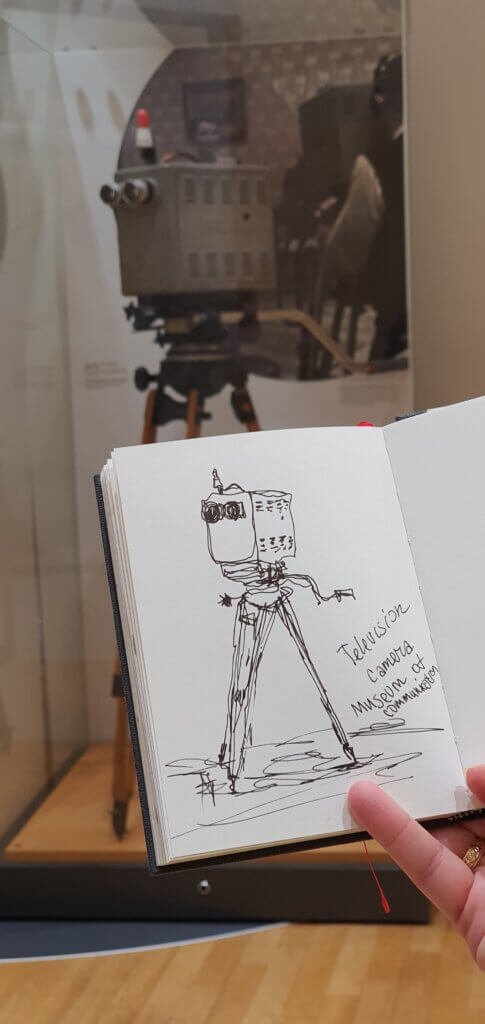 Television
camera
Museum of
communication